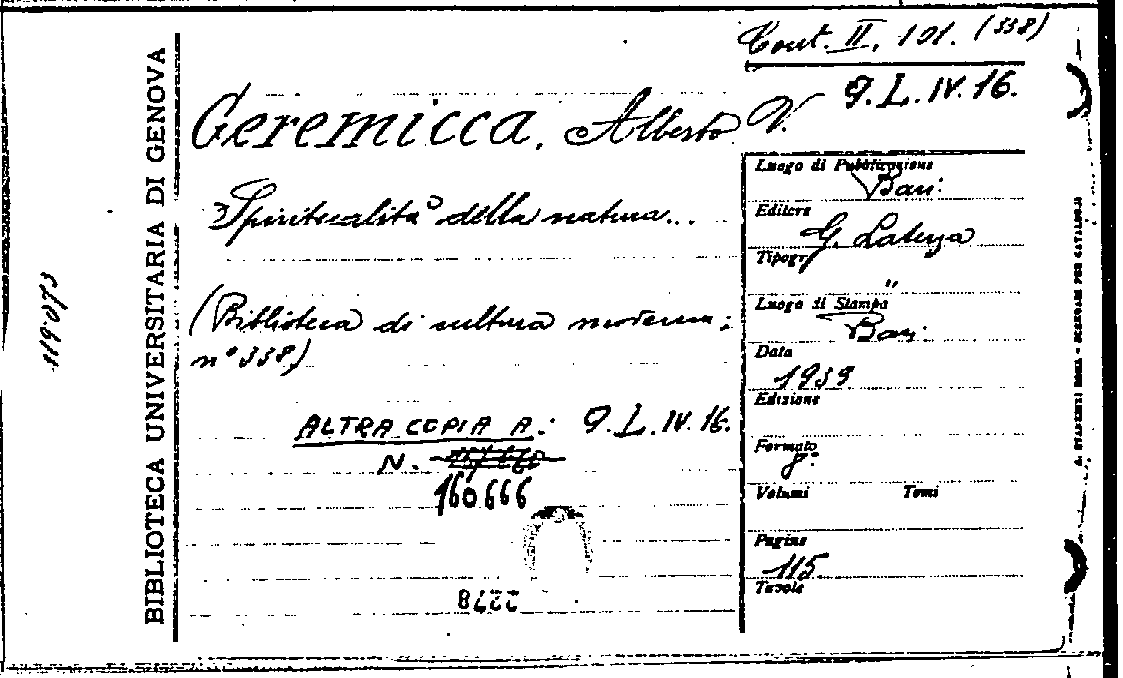 Cont. II. 101. (338)
9. L. IV. 16.
Geremicca, Alberto V.
Spiritualità della natura...
(Biblioteca di cultura moderna;
n° 338)
ALTRA COPIA A: 9. L. IV. 16.
N.
160.666
2278
BIBLIOTECA UNIVERSITARIA DI GENOVA
Luogo di Pubblicazione
Bari
Editore
G. Laterza
Tipogr.
"
Luogo di Stampa
Bari
Data
1939
Edizione
Formato
8°
Volumi Tomi
Pagine
115
Tavole